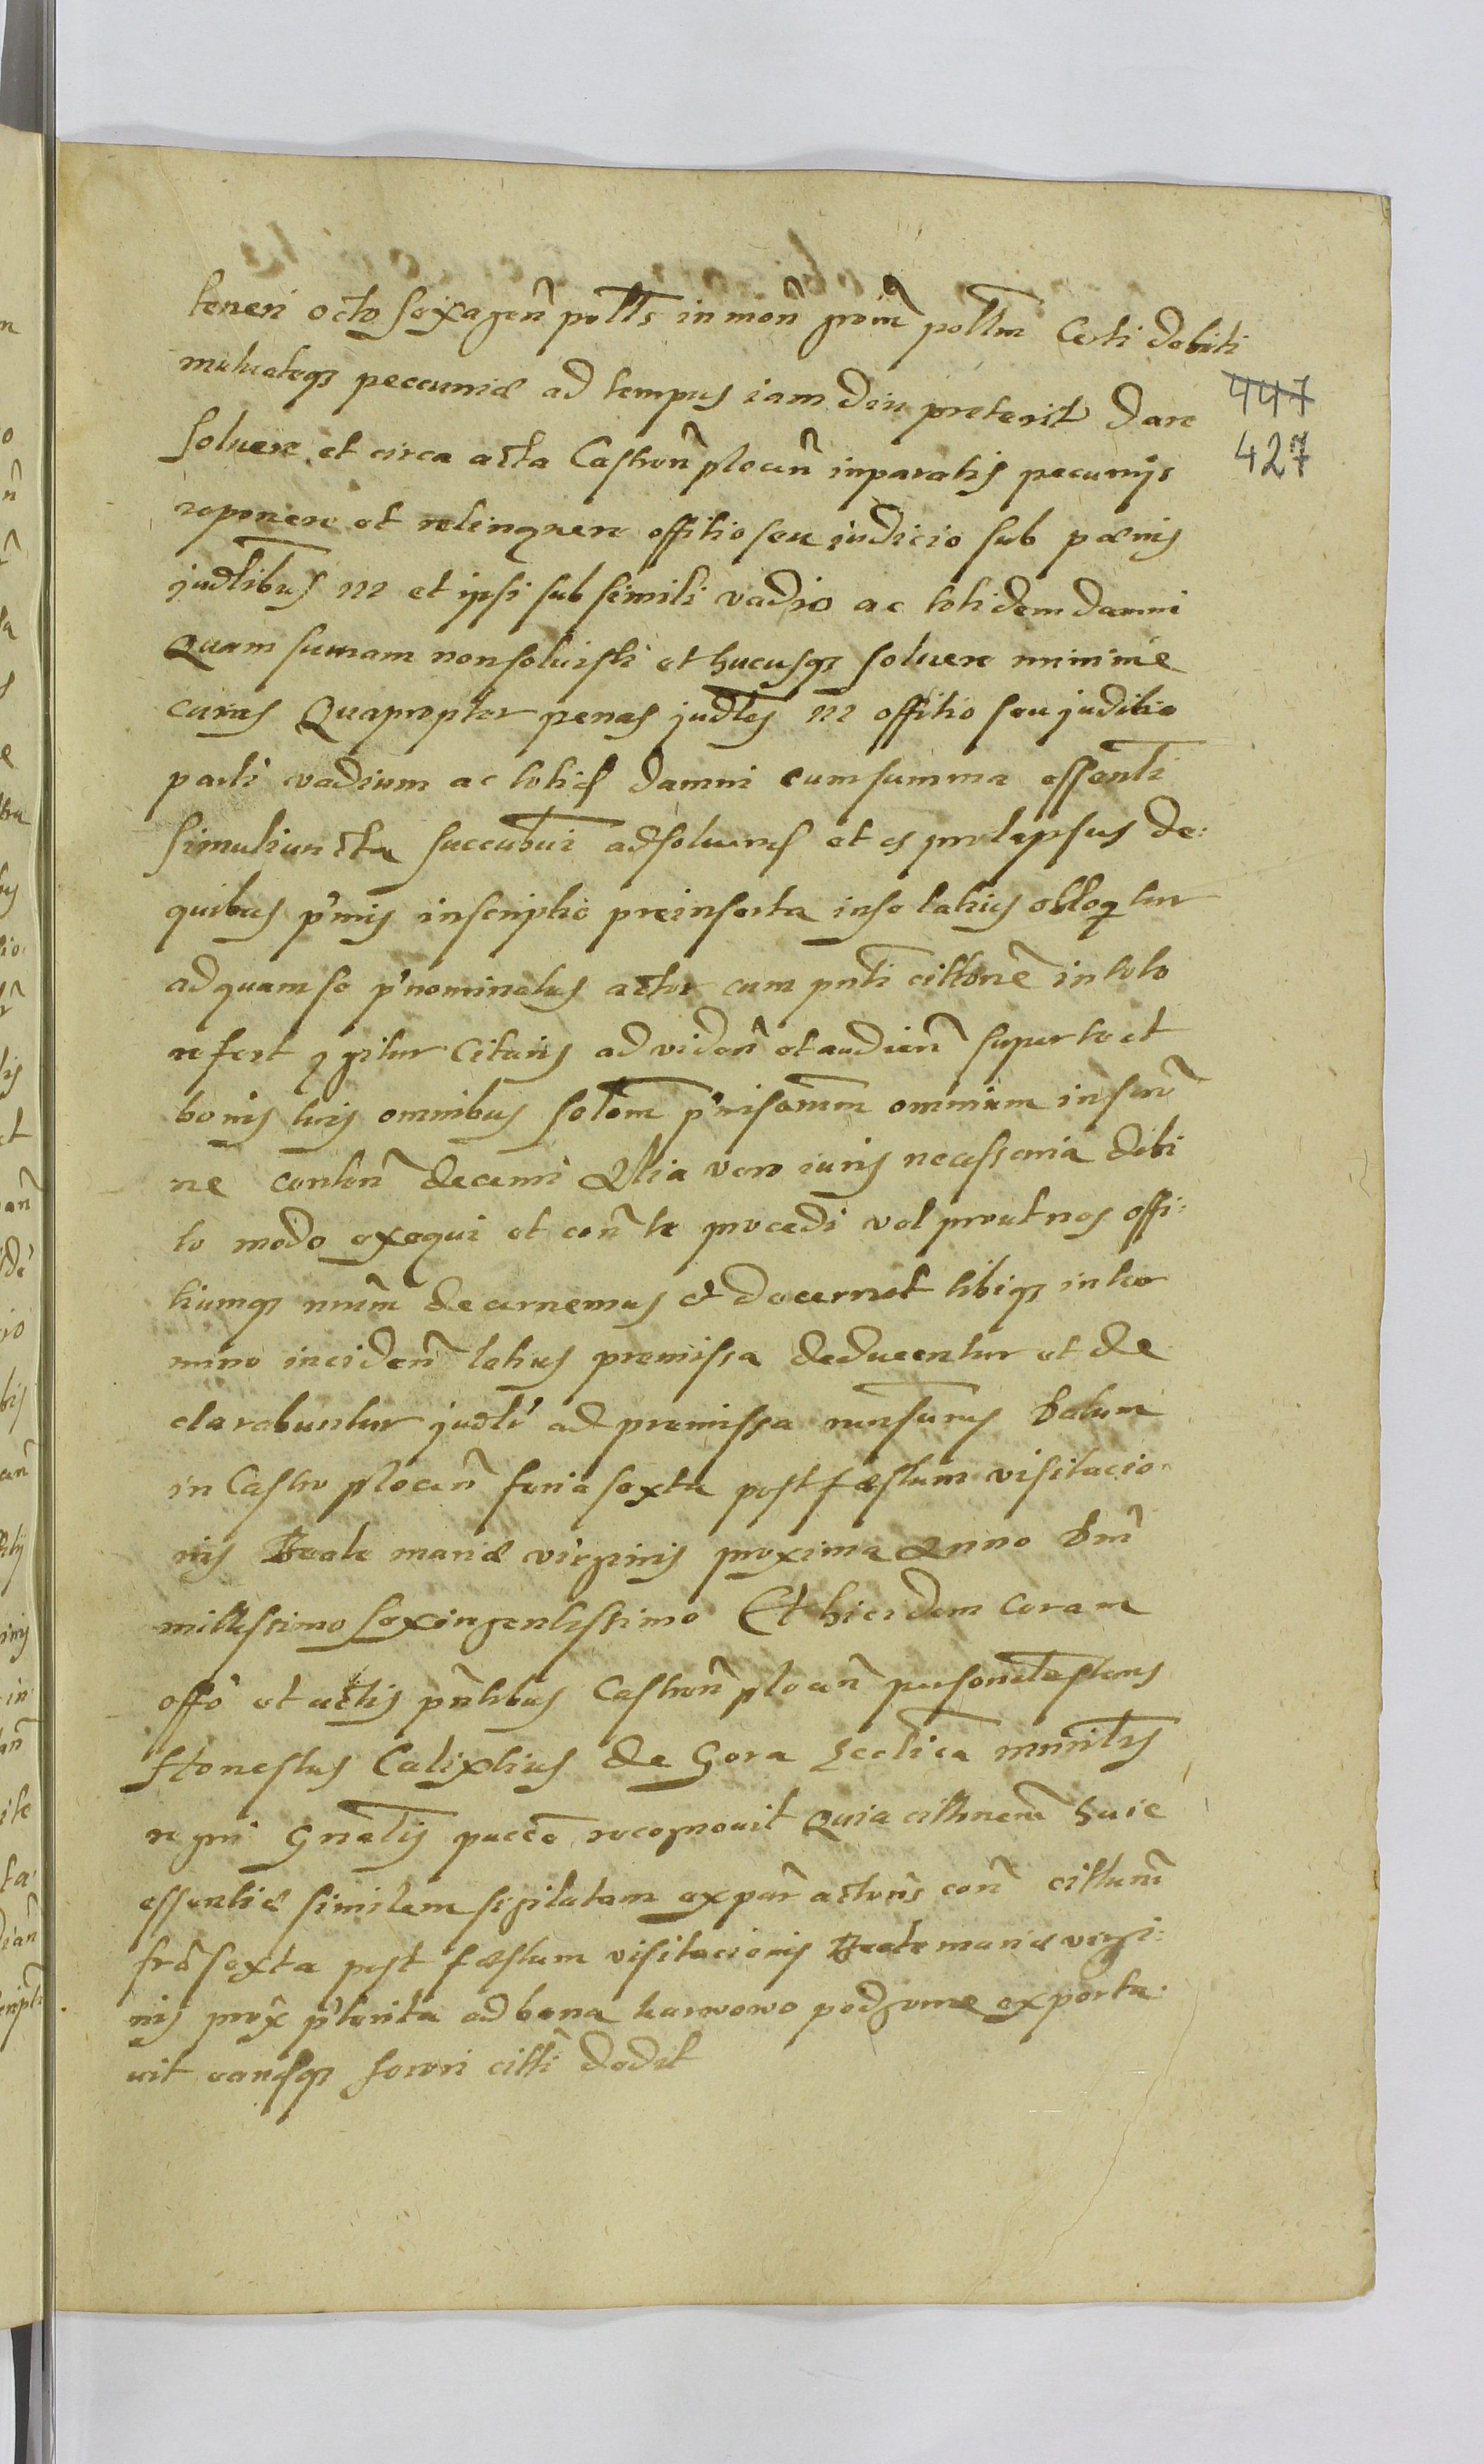 teneri octo sexagen̄ poll̄s in mon̄ grom̄ poll̄m Certi debiti
mutuateqȝ peccuniæ ad tempus iam diu preterit dare
447
soluere et circa acta Castren̄ plocen̄ in paratis pecunijs
427
reponere et relinquere offitio seu iudicio sub pœnis
judl̄ibus m et ipsi sub simili vadio ac totidem damni
Quam sumam non soluisti et hucusqȝ soluere minime
curas Quapropter penas judl̄es m offitio seu juditio
parti vadium ac totid damni cum summa essentl̄i
simul iuncta succubui ad soluend et es prolapsus de:
quibus p'mis inscriptio preinserta in se latius obloqtur
ad quam se p'nominatus actor cum pn̄ti cittōne in toto
refert qgitur Citaris ad viden̄ et audien̄ super te et
bonis tuis omnibus solōm p'missorum omnium in scrip̄
ne conten̄ decerni Alia vero iuris necessaria debi
to modo exequi et con̄ te procedi vel prout nos offi:
tiumqȝ nrūm decernemus et decernet tibiqȝ in ter
mino inciden̄ latius premissa deducentur et de
clarabuntur judl̄i ad premissa runsurus Datum
in Castro plocen̄ feria sexta post fæstum visitacio
nis Beate mariæ virginis proxima Anno Dm̄i
millessimo sexingentessimo Et hic idem coram
offō et actis pn̄tibus Castren̄ plocen̄ personl̄e stans
Honestus Calixtius de Gora mīnlis
regni Gnal̄is pucco recognouit Quia cittonem huic
essentiæ similem sigilatam ex par̄ actoris con̄ cittum̄
frā sexta post fæstum visitacionis Beate mariæ virgi:
nis prox̄ p'terita ad bona karwowo podgorne exporta:
uit eandqȝ sorori citti dedit